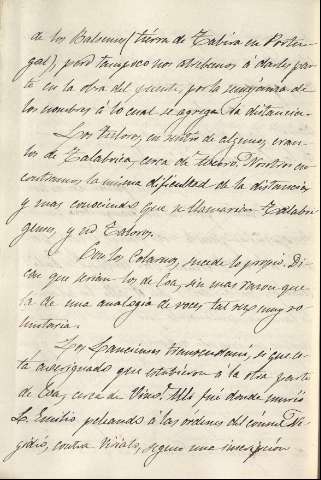 de los Balsenses (tierra de Tabira en Portu-
gal), pero tampoco nos atrebemos á darles par-
te en la obra del puente, por la semejanza de
los nombres á lo cual se agrega la distancia.
Los Talores, en sentir de algunos, eran
los de Talabrica, cerca de Nosotros en-
contramos la misma dificultad de la distancia
y mas conociendo que se llamarian Talabri-
genses, y no Talores.
Con los Colarnos, sucede lo propio. Di-
cen que serian los de Coa, sin mas razon que
la de una analogia de voces tal vez muy vo-
luntaria.
Los Lancienses transcudani, si que es-
tá averiguado que estubieron á la otra parte
de Coa, cerca de Allí fué donde murió
L. Emilio peleando á las ordenes del cónsul E-
gidio, contra Viriato, segun una inscripción